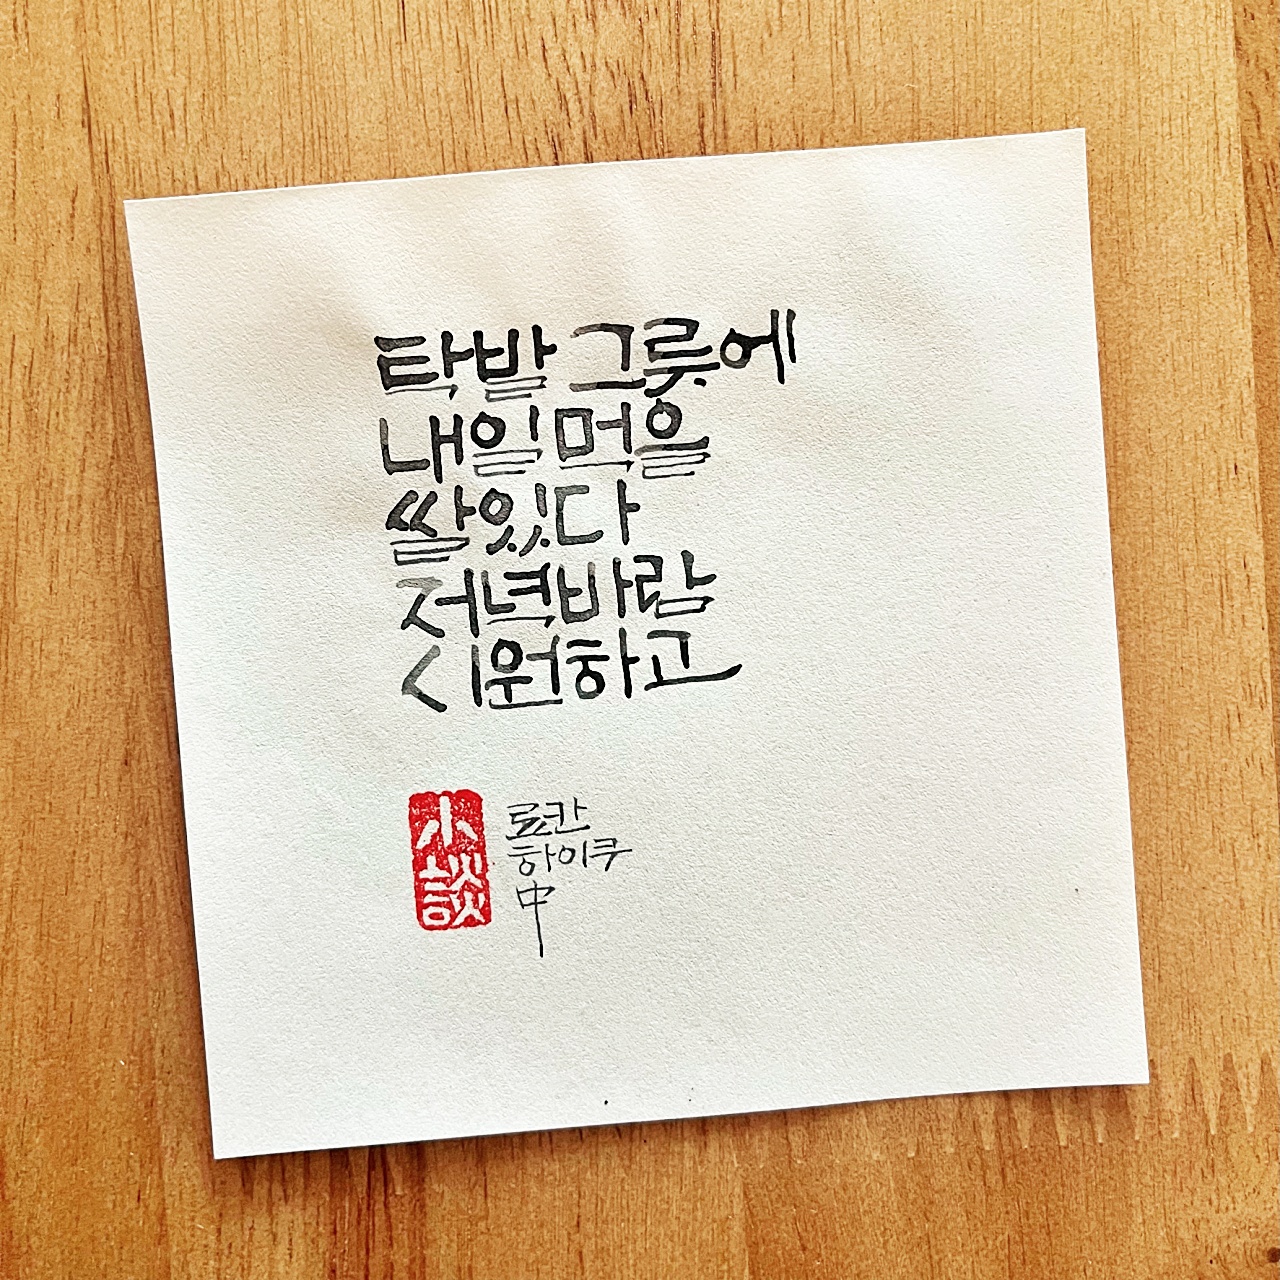 탁발 그릇에
내일 먹을
쌀 있다
저녁바람
시원하고
小談
료칸
하이쿠
中